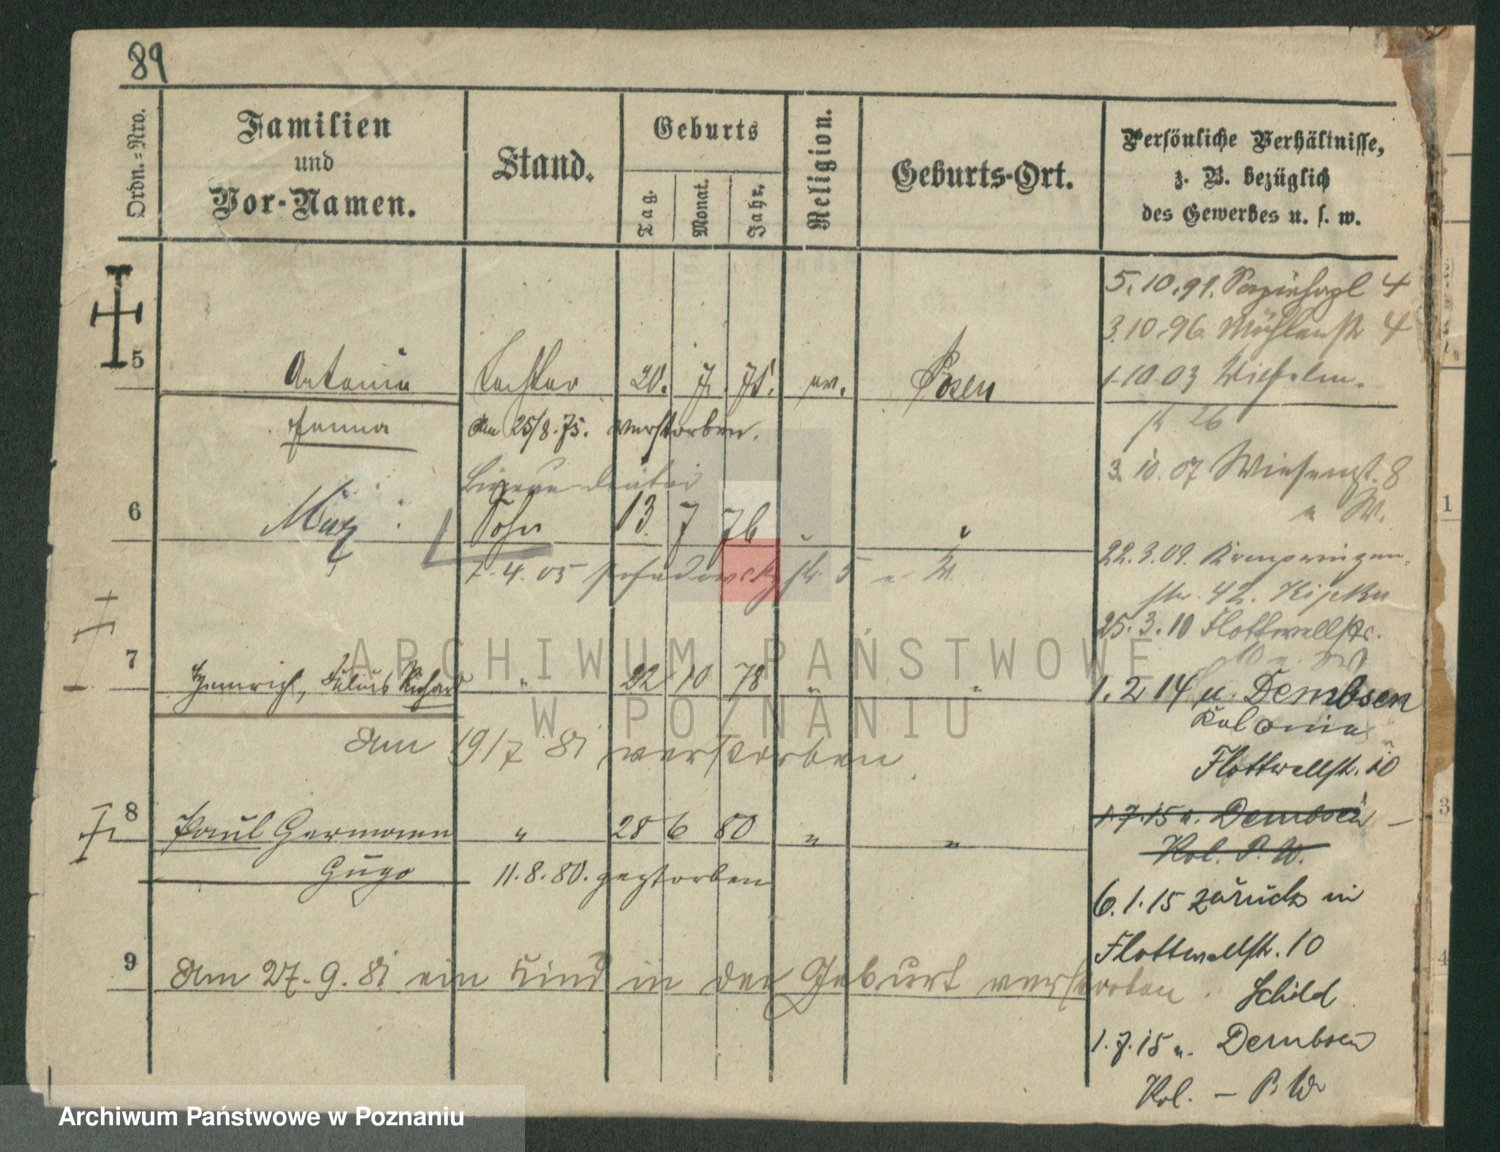 89
Ordn.=Nro.
Familien
und
Vor-Namen.
Stand.
Geburts
Tag.
Monat.
Jahr.
Religion.
Geburts-Ort.
Persönliche Verhältnisse,
z. B. bezüglich
des Gewerbes u. s. w.
5 Antonie Tochter 20. 7. 75. ev. Posen
Am 25/8.75. verstorben.
6 Max Sohn 13. 7 76 " "
1.4.05 str 5
7 Heinrich, Julius Richard " 22 10 78 " "
Am 19/7 81 verstorben
8 Paul Hermann " 28 6 80 " "
Hugo 11.8.80. gestorben
9 Am 27.9.81 ein Kind in der Geburt verstorben.
5.10.91. 4
3.10.96. Mühlenstr 4
1.10.03 Wilhelm.
str 26
3.10.07 Wiesenstr. 8
22.3.09. Kronprinzen
str. 42.
25.3.10 Flottwellstr.
1.2 14 n. Dembsen
Kolonie
Flottwellstr. 10
1.7.15 n. Dembsen
Kol. P. W.
6.1.15 zurück in
Flottwellstr. 10
Schild
1.7.15 n. Dembsen
Kol. – P. W
1
3
4
ARCHIWUM PAŃSTWOWE
W POZNANIU
Archiwum Państwowe w Poznaniu